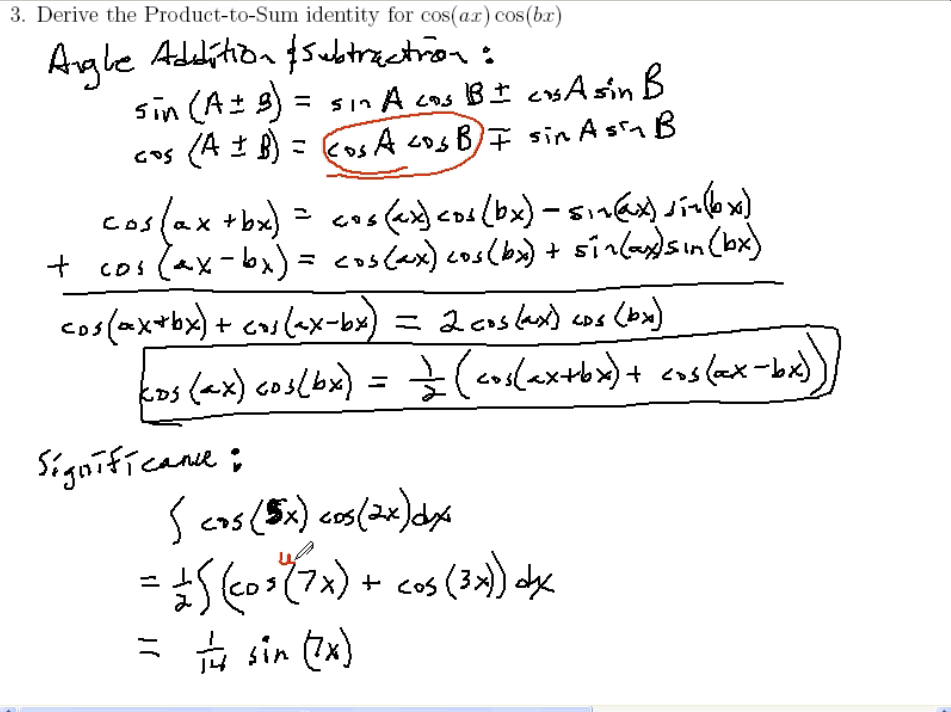 3. Derive the Product-to-Sum identity for cos(ax) cos(bx)
Angle Addition & Subtraction :
sin (A ± B) = sin A cos B ± cos A sin B
cos (A ± B) = cos A cos B ∓ sin A sin B
cos(ax + bx) = cos(ax) cos(bx) − sin(ax) sin(bx)
+ cos (ax − bx) = cos(ax) cos(bx) + sin(ax) sin(bx)
cos(ax+bx) + cos(ax−bx) = 2 cos(ax) cos (bx)
cos (ax) cos(bx) = 1/2 ( cos(ax+bx) + cos(ax−bx))
Significance :
∫ cos(5x) cos(2x)dx
u
= 1/2 ∫ (cos(7x) + cos(3x)) dx
= 1/14 sin (7x)